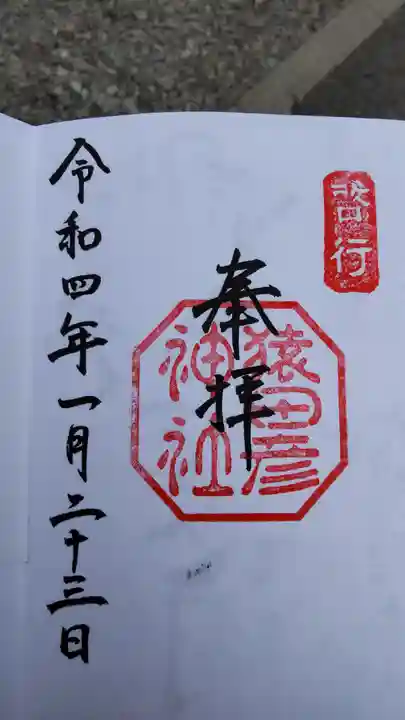 啓行
奉拝
猿田彦
神社
令和四年一月二十三日